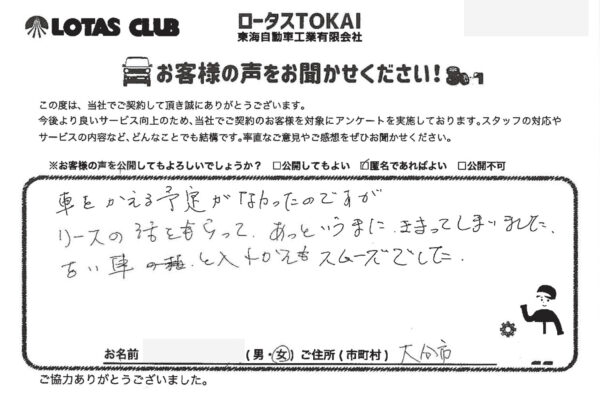 LOTAS CLUB
ロータスTOKAI
東海自動車工業有限会社
お客様の声をお聞かせください!
この度は、当社でご契約して頂き誠にありがとうございます。
今後より良いサービス向上のため、当社でご契約のお客様を対象にアンケートを実施しております。スタッフの対応や
サービスの内容など、どんなことでも結構です。率直なご意見やご感想をぜひお聞かせください。
※お客様の声を公開してもよろしいでしょうか? □公開してもよい ☑匿名であればよい □公開不可
車をかえる予定がなかったのですが
リースの話をもらって、あっというまに、きまってしまいました、
古い車 と入れかえもスムーズでした、
お名前 (男・女) ご住所(市町村) 大分市
ご協力ありがとうございました。